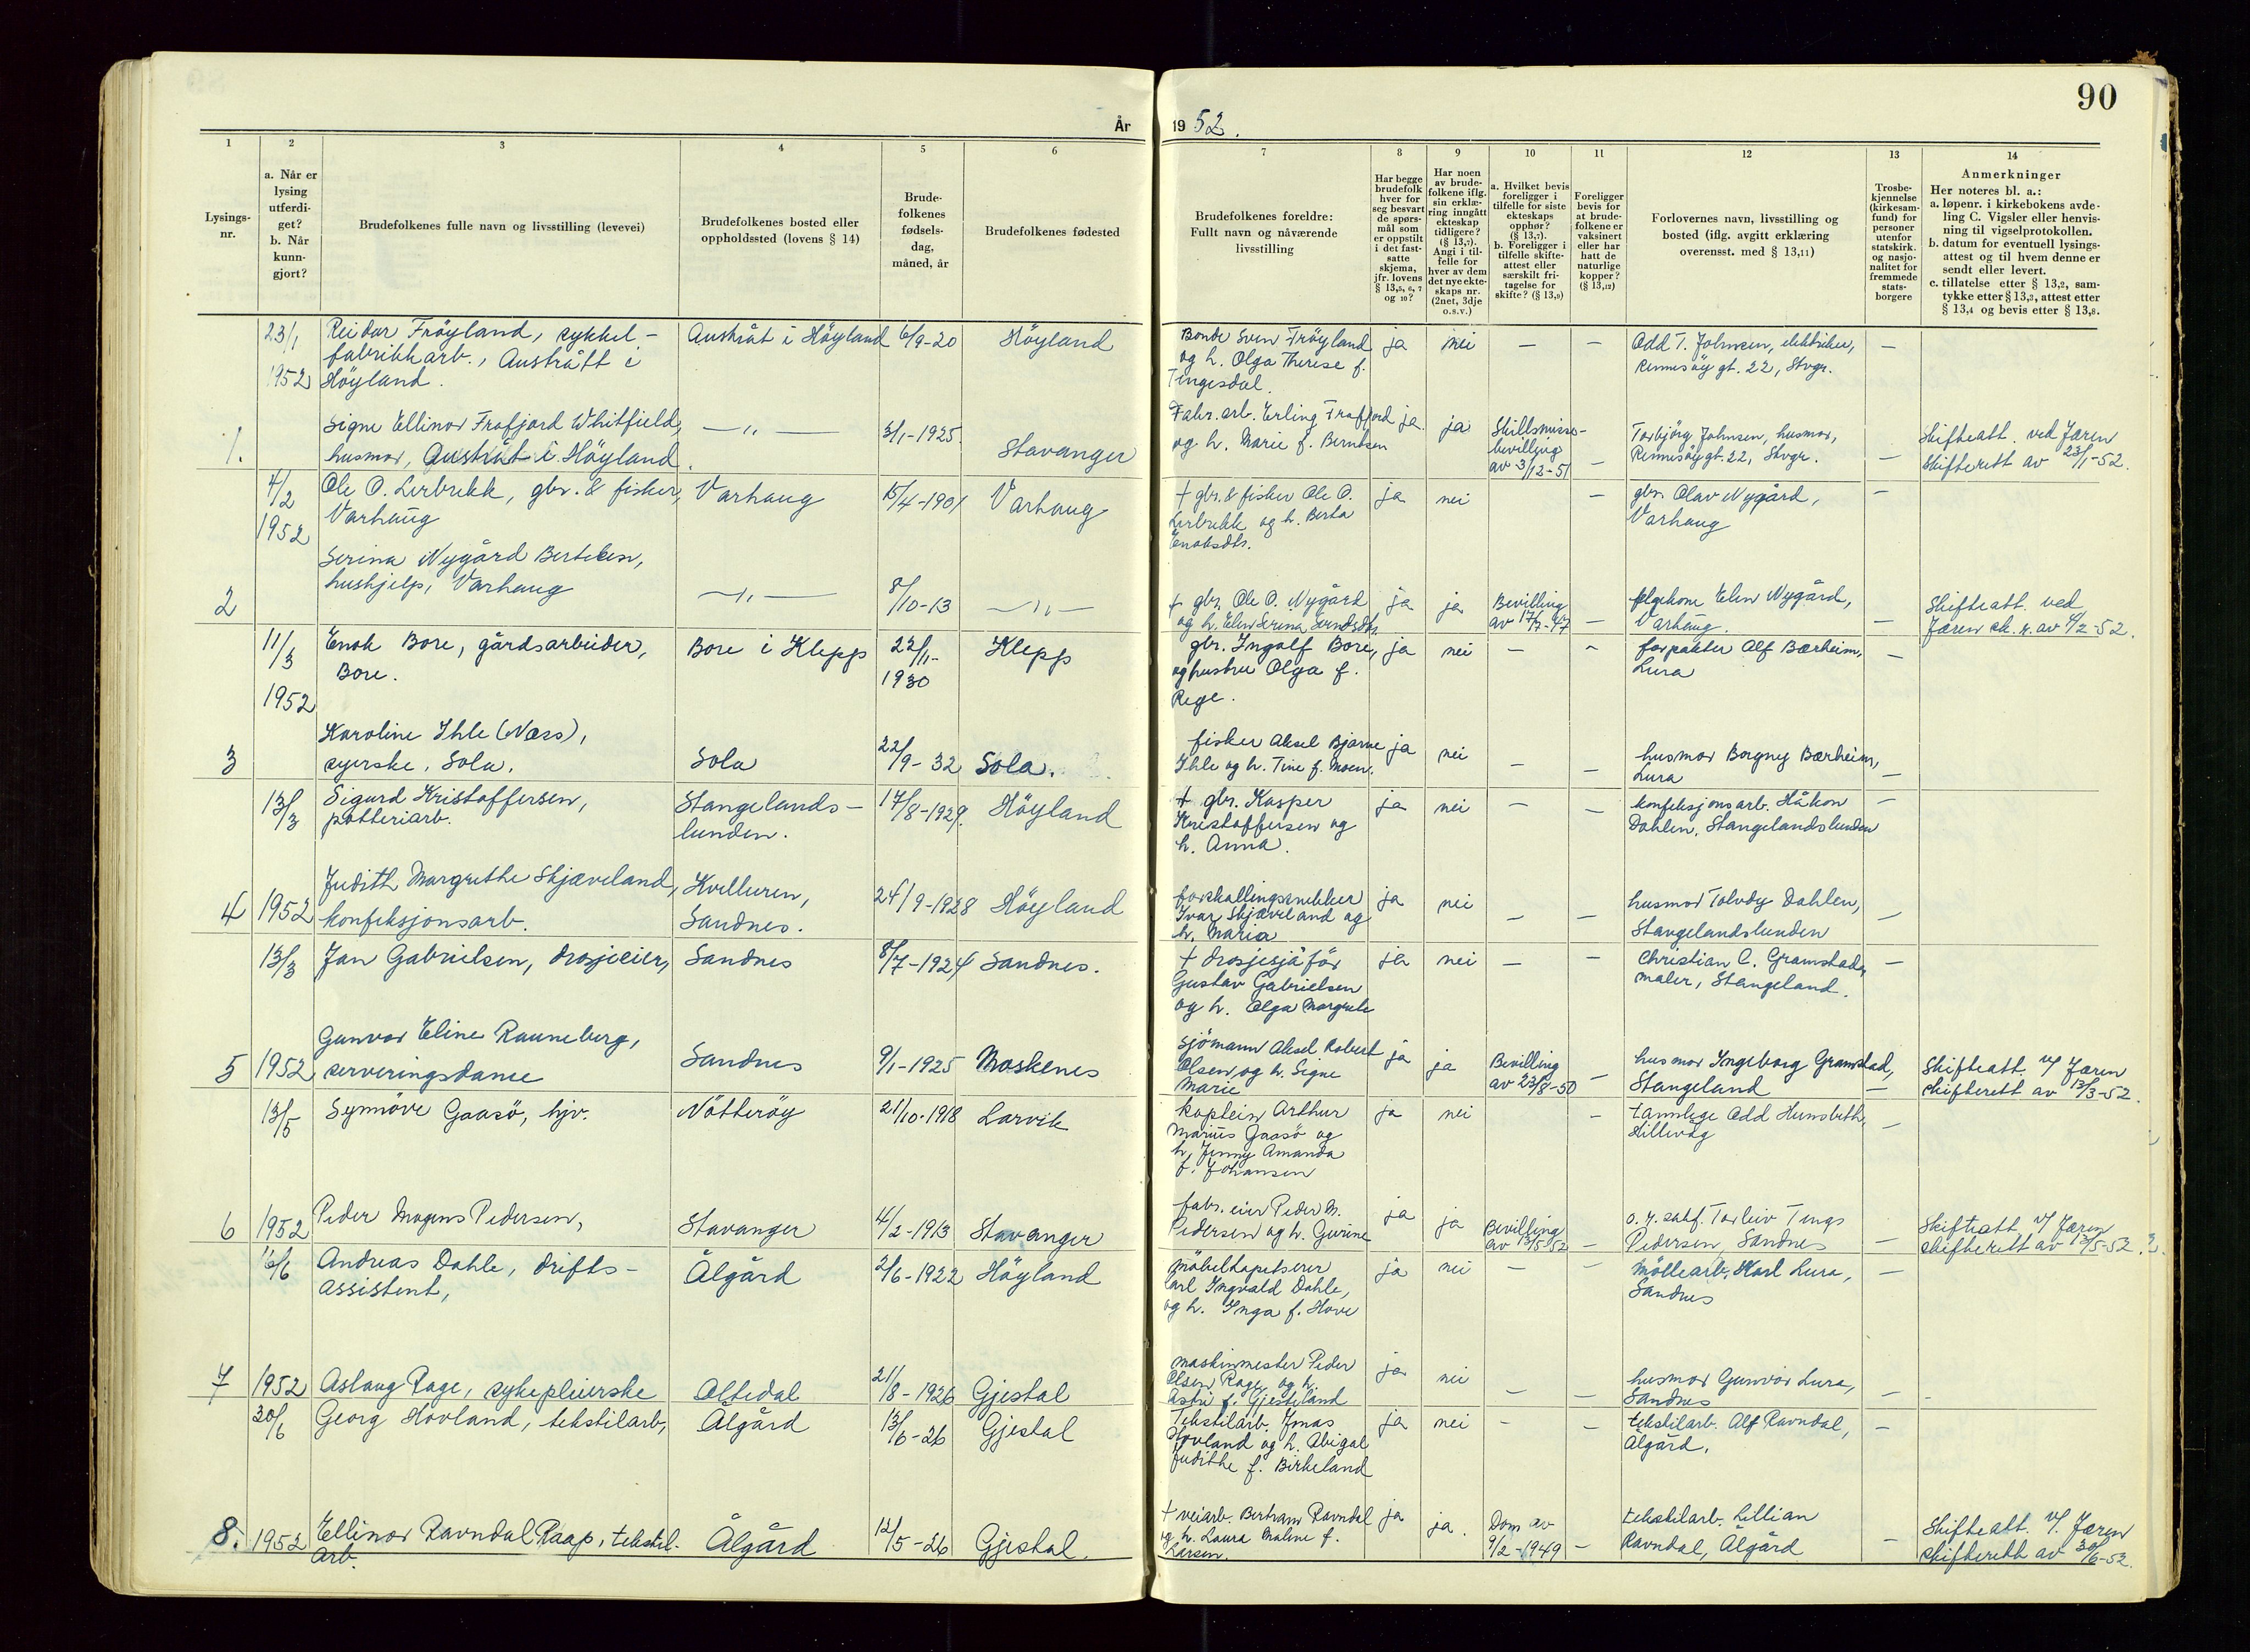 90
År
19 52.
1
2
3
4
5
6
7
8
9
10
11
12
13
14
Lysings-
nr.
a. Når er
lysing
utferdi-
get?
b. Når
kunn-
gjort?
Brudefolkenes fulle navn og livsstilling (levevei)
Brudefolkenes bosted eller
oppholdssted (lovens § 14)
Brude-
folkenes
fødsels-
dag,
måned, år
Brudefolkenes fødested
Brudefolkenes foreldre:
Fullt navn og nåværende
livsstilling
Har begge
brudefolk
hver for
seg besvart
de spørs-
mål som
er oppstilt
i det fast-
satte
skjema,
jfr. lovens
§ 13,5, 6, 7
og 10?
Har noen
av brude-
folkene iflg.
sin erklæ-
ring inngått
ekteskap
tidligere?
(§ 13,7).
Angi i til-
felle for
hver av dem
det nye ekte-
skaps nr.
(2net, 3dje
o.s.v.)
a. Hvilket bevis
foreligger i
tilfelle for siste
ekteskaps
opphør?
(§ 13,7).
b. Foreligger i
tilfelle skifte-
attest eller
særskilt fri-
tagelse for
skifte? (§ 13,9)
Foreligger
bevis for
at brude-
folkene er
vaksinert
eller har
hatt de
naturlige
kopper?
(§ 13,12)
Forlovernes navn, livsstilling og
bosted (iflg. avgitt erklæring
overensst. med § 13,11)
Trosbe-
kjennelse
(kirkesam-
fund) for
personer
utenfor
statskirk.
og nasjo-
nalitet for
fremmede
stats-
borgere
Anmerkninger
Her noteres bl. a.:
a. løpenr. i kirkebokens avde-
ling C. Vigsler eller henvis-
ning til vigselprotokollen.
b. datum for eventuell lysings-
attest og til hvem denne er
sendt eller levert.
c. tillatelse etter § 13,2, sam-
tykke etter § 13,3, attest etter
§ 13,4 og bevis etter § 13,8.
23/1
1952
Reidar Fröyland, sykkel-
fabrikkarb., Austrått i
Höyland.
Austråt i Höyland
6/9-20
Höyland
Bonde Sven Fröyland
og h. Olga Therese f.
Tingesdal.
ja
nei
—
—
Odd T. Johnsen, elektriker,
Rennesöy gt. 22, Stvgr.
—
1.
Signe Ellinor Frafjord Whitfield,
husmor, Austråt i Höyland.
—„—
3/1-1925.
Stavanger
Fabr. arb. Erling Frafjord
og h. Marie f. Berntsen
ja
ja
Skillsmisse-
bevilling
av 3/12-51
—
Torbjörg Johnsen, husmor,
Rennesöy gt. 22, Stvgr.
—
Skifteatt. ved Jæren
Skifterett av 23/1-52.
4/2
1952
Ole O. Lerbrekk, gbr. & fisker,
Varhaug
Varhaug
15/4-1901
Varhaug
+ gbr. & fisker Ole O.
Lerbrekk og h. Berta
Enoksdtr.
ja
nei
—
gbr. Olav Nygård,
Varhaug
—
2
Serina Nygård Bertelsen,
hushjelp, Varhaug
—„—
8/10-13
—„—
+ gbr. Ole O. Nygård
og h. Elen Serina Svendsdtr.
ja
ja
Bevilling
av 17/7-47
—
Elen Nygård,
Varhaug.
—
Skifteatt. ved
Jæren sk. r. av 4/2-52.
11/3
1952
Enok Bore, gårdsarbeider,
Bore.
Bore i Klepp
22/11-
1930
Klepp
gbr. Ingolf Bore,
og hustru Olga f.
Rege.
ja
nei
—
—
forpakter Alf Bærheim,
Lura
—
3
Karoline Ihle (Næss),
syerske, Sola.
Sola
22/9-32
Sola.
fisker Aksel Bjarne
Ihle og h. Tine f. Moen.
ja
nei
—
—
husmor Borgny Bærheim,
Lura
—
13/3
Sigurd Kristoffersen,
potteriarb.
Stangelands-
lunden.
17/8-1929.
Höyland
+ gbr. Kasper
Kristoffersen og
h. Anna.
ja
nei
—
—
konfeksjonsarb. Håkon
Dahlen, Stangelandslunden
—
4
1952
Judith Margrethe Skjæveland,
konfeksjonsarb.
Kvelluren,
Sandnes.
24/9-1928
Höyland
forskallingsnekker
Ivar Skjæveland og
h. Maria
ja
nei
—
—
husmor Tolvdy Dahlen,
Stangelandslunden
—
13/3
Jan Gabrielsen, drosjeeier,
Sandnes
8/7-1924
Sandnes.
+ drosjesjåför
Gustav Gabrielsen
og h. Olga Margrete
ja
nei
—
—
Christian C. Gramstad,
maler, Stangeland.
—
5
1952
Gunvor Eline Rauneberg,
serveringsdame
Sandnes
9/1-1925
Moskenes
sjömann Aksel Robert
Olsen og h. Signe
Marie
ja
ja
Bevilling
av 23/8-50
—
husmor Ingeborg Gramstad,
Stangeland
—
Skifteatt. v/ Jæren
skifterett av 13/3-52.
13/5
Synnöve Gaasö, hjv.
Nötteröy
21/10-1918
Larvik
kaptein Arthur
Marius Gaasö og
h. Jenny Amanda
f. Johansen
ja
nei
—
tannlege Odd Humbeth,
Hillevåg
—
6
1952
Peder Mogens Pedersen,
Stavanger
4/2-1913
Stavanger
fabr. eier Peder M.
Pedersen og h. Gurine
ja
ja
Bevilling
av 13/5-52
—
o.r. sakf. Torleiv Tengs
Pedersen, Sandnes
—
Skifteatt. v/ Jæren
skifterett av 13/5-52.
16/6
Andreas Dahle, drifts-
assistent,
Ålgård
2/6-1922
Höyland
möbeltapetserer
Carl Ingvald Dahle,
og h. Inga f. Hove
ja
nei
—
—
Möllearb. Karl Lura,
Sandnes
—
7
1952
Aslaug Rage, sykepleierske
Oltedal
21/8-1926
Gjestal
maskinmester Peder
Olsen Rage, og h.
Astri f. Gjesteland
ja
nei
—
—
husmor Gunvor Lura,
Sandnes
—
30/6
Georg Hovland, tekstilarb.,
Ålgård
13/6-26
Gjestal
Tekstilarb. Jonas
Hovland og h. Abigal
Judithe f. Birkeland
ja
nei
—
—
tekstilarb. Alf Ravndal,
Ålgård.
—
8.
1952
Ellinor Ravndal Raap, tekstil-
arb.
Ålgård
12/5-26
Gjestal.
+ veiarb. Bertram Ravndal
og h. Laura Maline f.
Larsen.
ja
ja.
Dom av
9/2-1949
—
tekstilarb. Lillian
Ravndal, Ålgård
—
Skifteatt. v/ Jæren
skifterett av 30/6-52.